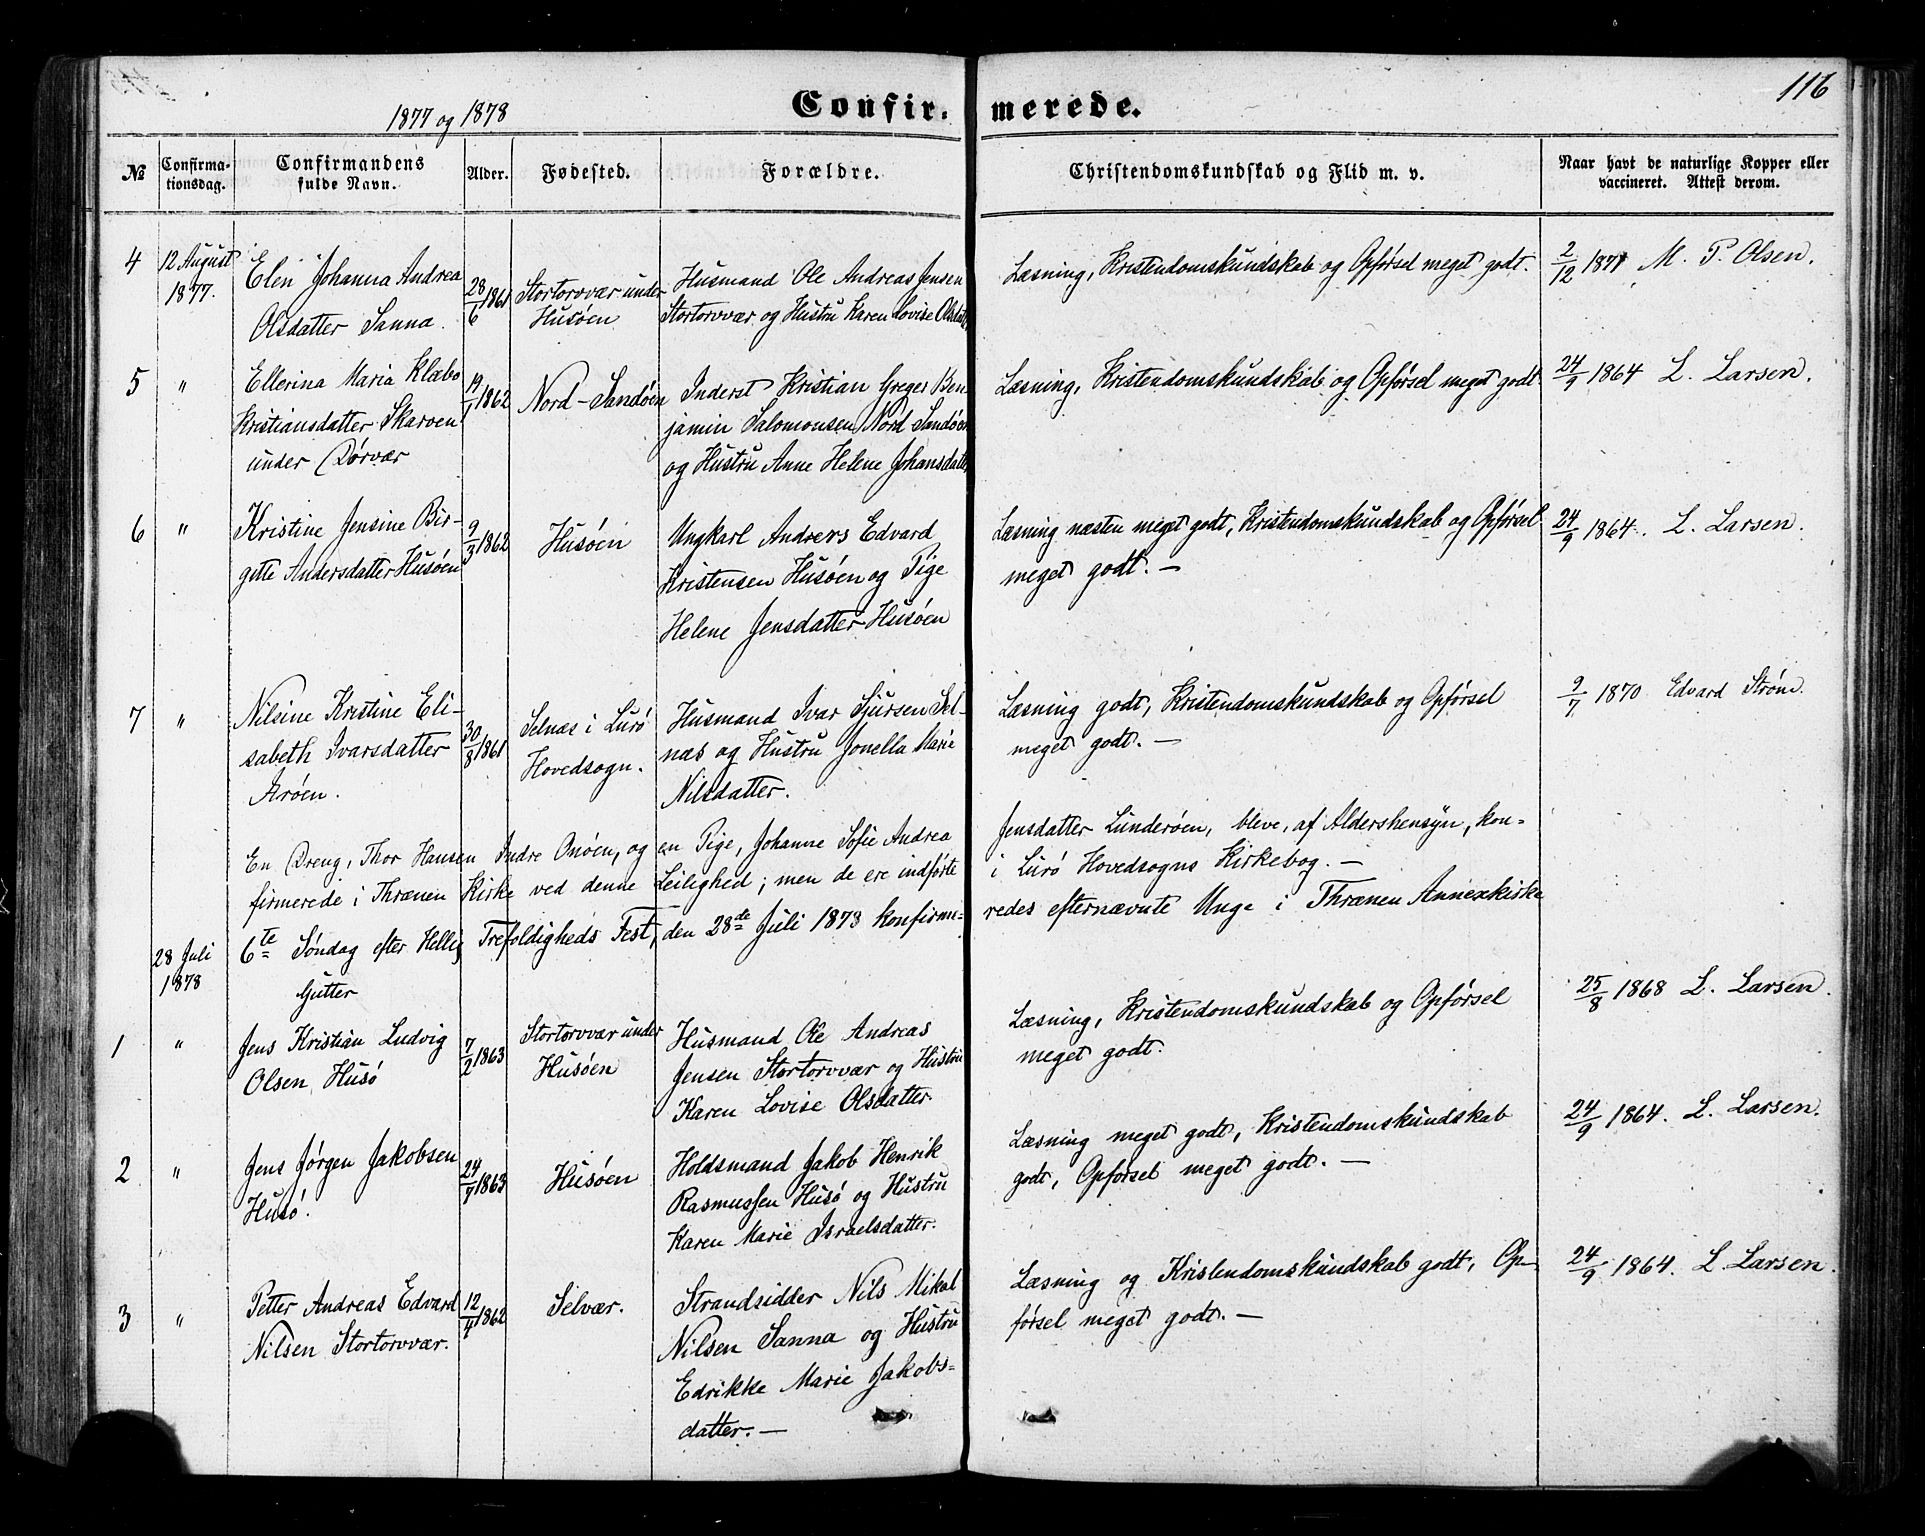 116
1877 og 1878
Confir- merede.
№
Confirma-
tionsdag.
Confirmandens
fulde Navn.
Alder.
Fødested.
Forældre.
Christendomskundskab og Flid m. v.
Naar havt de naturlige Kopper eller
vaccineret. Attest derom.
4
12 August
1877.
Elen Johanna Andrea
Olsdatter Sanna.
28/6 1861
Stortorvvær under
Husöen
Husmand Ole Andreas Jensen
Stortorvvær og Hustru Karen Lovise Olsdatt
Læsning, Kristendomskundskab og Opförsel meget godt.
2/12 1871 M. P. Olsen.
5
"
Ellerina Maria Klæbo
Kristiansdatter Skarven
under Dörvær
19/1 1862
Nord-Sandöen
Inderst Kristian Greger Ben
jamin Salomonsen Nord Sandöen
og Hustru Anne Helene Johansdatter
Læsning, Kristendomskundskab og Opförsel meget godt
24/9 1864 L. Larsen.
6
"
Kristine Jensine Bir-
gitte Andersdatter Husöen
9/3 1862
Husöen
Ungkarl Anders Edvard
Kristensen Husöen og Pige
Helene Jensdatter Husöen
Læsning næsten meget godt, Kristendomskundskab og Opförsel
meget godt. —
24/9 1864. L. Larsen.
7
"
Nilsine Kristine Eli-
sabeth Ivarsdatter
Aröen.
30/8 1861
Selnæs i Lurö
Hovedsogn.
Husmand Ivar Sjursen Sel-
næs og Hustru Jonella Marie
Nilsdatter.
Læsning godt, Kristendomskundskab og Opförsel
meget godt. —
9/7 1870 Edvard Ström.
En Dreng, Thor Hansen Indre Onöen, og en Pige, Johanne Sofie Andrea Jensdatter Lunderöen, bleve, af Aldershensyn, kon-
firmerede i Thrænen Kirke ved denne Leilighed; men de ere indförte i Lurö Hovedsogns Kirkebog. —
28 Juli
1878
6te Söndag efter Hellig Trefoldigheds Fest, den 28de Juli 1878 konfirme- redes efternævnte Unge i Thrænen Annexkirke
Gutter
1
"
Jens Kristian Ludvig
Olsen Husö
7/2 1863
Stortorvvær under
Husöen
Husmand Ole Andreas
Jensen Stortorvvær og Hustru
Karen Lovise Olsdatter.
Læsning, Kristendomskundskab og Opförsel
meget godt.
25/8 1868 L. Larsen.
2
"
Jens Jörgen Jakobsen
Husö.
24/7 1863
Husöen
Holdsmand Jakob Henrik
Rasmussen Husö og Hustru
Karen Marie Israelsdatter.
Læsning meget godt, Kristendomskundskab
godt, Opförsel meget godt. —
24/9 1864. L. Larsen.
3
"
Petter Andreas Edvard
Nilsen Stortorvvær.
12/4 1862
Selvær.
Strandsidder Nils Mikal
Nilsen Sanna og Hustru
Edrikke Marie Jakobs-
datter. —
Læsning og Kristendomskundskab godt, Op-
försel meget godt. —
24/9 1864. L Larsen.